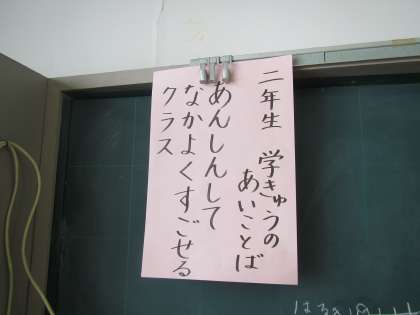 二年生 学きゅうの
あいことば
あんしんして
なかよくすごせる
クラス